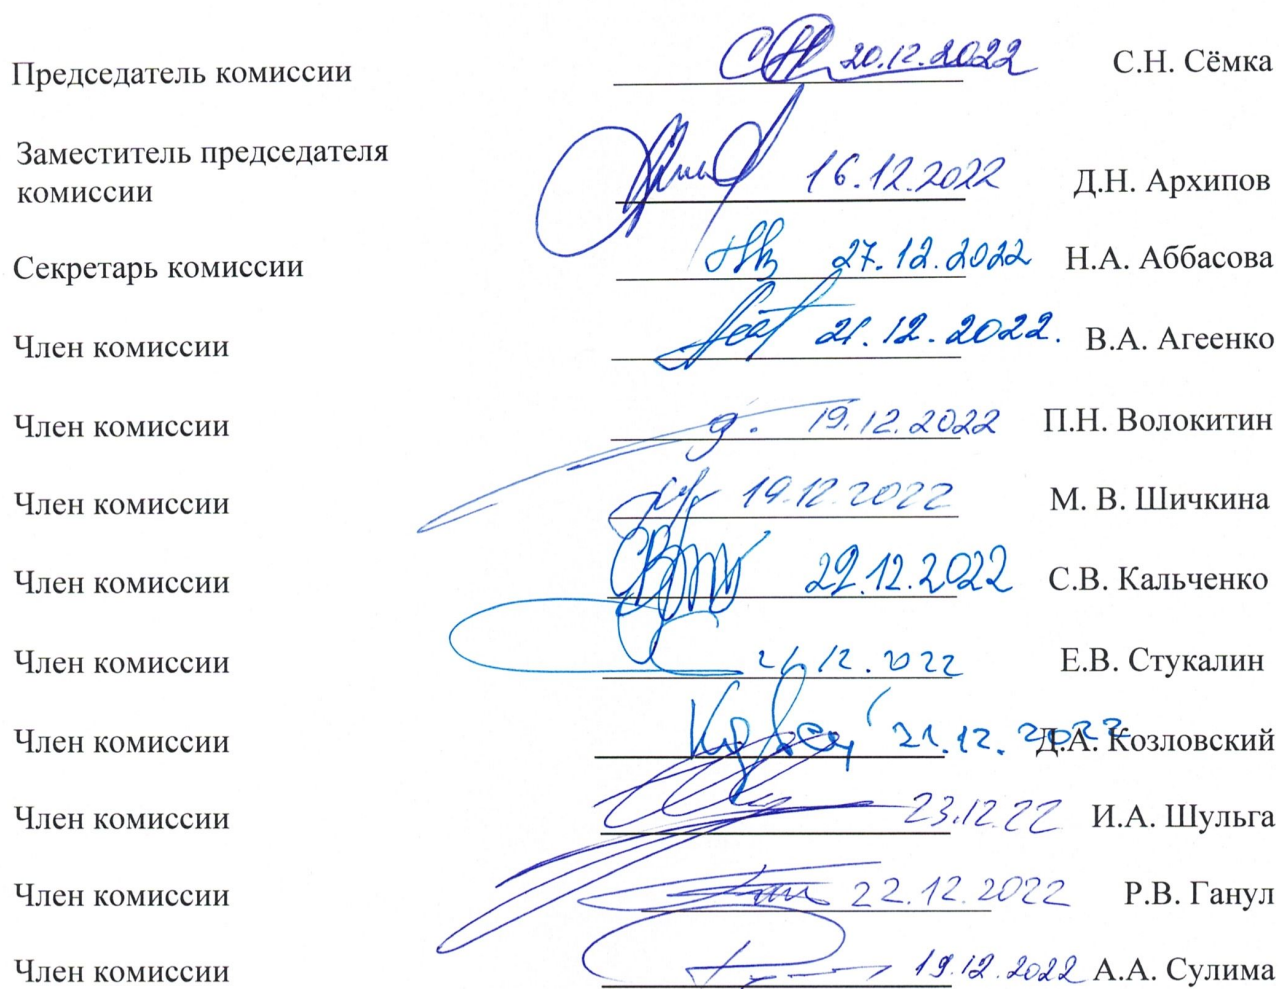 Председатель комиссии 20.12.2022 С.Н. Сёмка
Заместитель председателя
комиссии 16.12.2022 Д.Н. Архипов
Секретарь комиссии 27.12.2022 Н.А. Аббасова
Член комиссии 21.12.2022. В.А. Агеенко
Член комиссии 19.12.2022 П.Н. Волокитин
Член комиссии 19.12.2022 М. В. Шичкина
Член комиссии 12.2022 С.В. Кальченко
Член комиссии 21.12.2022 Е.В. Стукалин
Член комиссии 21.12.2022 Д.А. Козловский
Член комиссии 23.12.22 И.А. Шульга
Член комиссии 22.12.2022 Р.В. Ганул
Член комиссии 19.12.2022 А.А. Сулима